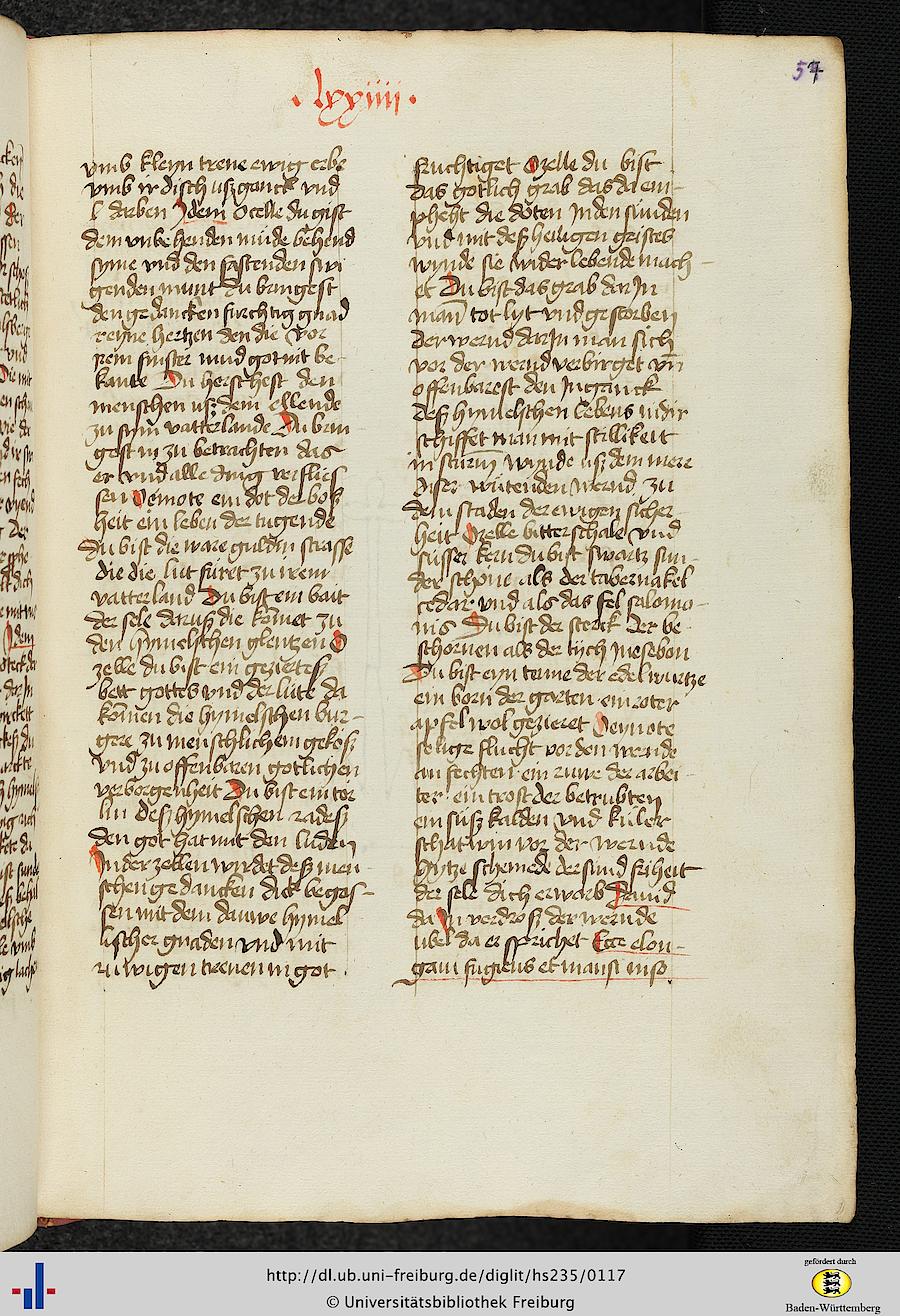 · lxxiiii ·
57
vmb kleyn trene ewig erbe
vmb irdisch uszganck vnd
l darben Idem O celle du gist
dem vnbehenden mude behend
syme vnd den fastenden swi
genden munt du brengest
den gedancken furchtig gnad
reyne hertzen den die vor
rem finster nund got nit be-
kante Du herschest den
menschen usz dem ellende
zu sym vatterlande Du brin
gest in zu betrachten das
er vnd alle ding verflies
sen O emote ein dot der bosz
heit ein leben der tugende
Du bist die ware guldin strasse
die die lut furet zu irem
vatterland Du bist ein bait
der sele darusz die komet zu
den hymelschen glentzen O
zelle du bist ein geziertes
bett gottes vnd der lute da
komen die hymelschen bur-
gere zu menschlichem gekosz
vnd zu offenbaren gotlichen
verborgenheit Du bist ein tor
lin desz hymelschen radesz
den got hat mit den luden
In der zellen wirdet desz men
schen gedancken dick begos-
sen mit dem dauwe hymel
lischer gnaden vnd mit
ruwigen trenen in got .
fruchtiget O zelle du bist
das gotlich grab das da em-
pheht die doten in den sunden
vnd mit desz heiligen geistes
wynde sie wider lebende mach-
et Du bist das grab dar In
man tot lyt vnd gestorben
der wernd dar In man sich
vor der wernd verbirget vn
offenbarest den Inganck
desz hymelschen lebens in dir
schiffet man mit stillikeit
in sturm wynde usz dem mere
diser wutenden wernd zu
dem staden der ewigen sicher
heit O zelle bitter schale vnd
susser kern du bist swartz sun-
der schone als der tabernakel
cedar vnd als das fel salomo-
nis Du bist der sterck der be-
schornen als der tych In esebon
Du bist eyn tenne der edel wurtze
ein born der garten ein roter
apfel wol gezieret O eynote
selige flucht vor den wernde
an fechten ein ruwe der arbei-
ter ein trost der betrubten
ein susz kalden vnd kuler
schatwin vor der wernde
hytze scheinede der sund friheit
der sele dich erwarb Dauid
da In verdrosz der wernde
ubel da er sprichet Ecce elon-
gaui fugiens et mansi in so
http://dl.ub.uni-freiburg.de/diglit/hs235/0117
© Universitätsbibliothek Freiburg
gefördert durch
Baden-Württemberg